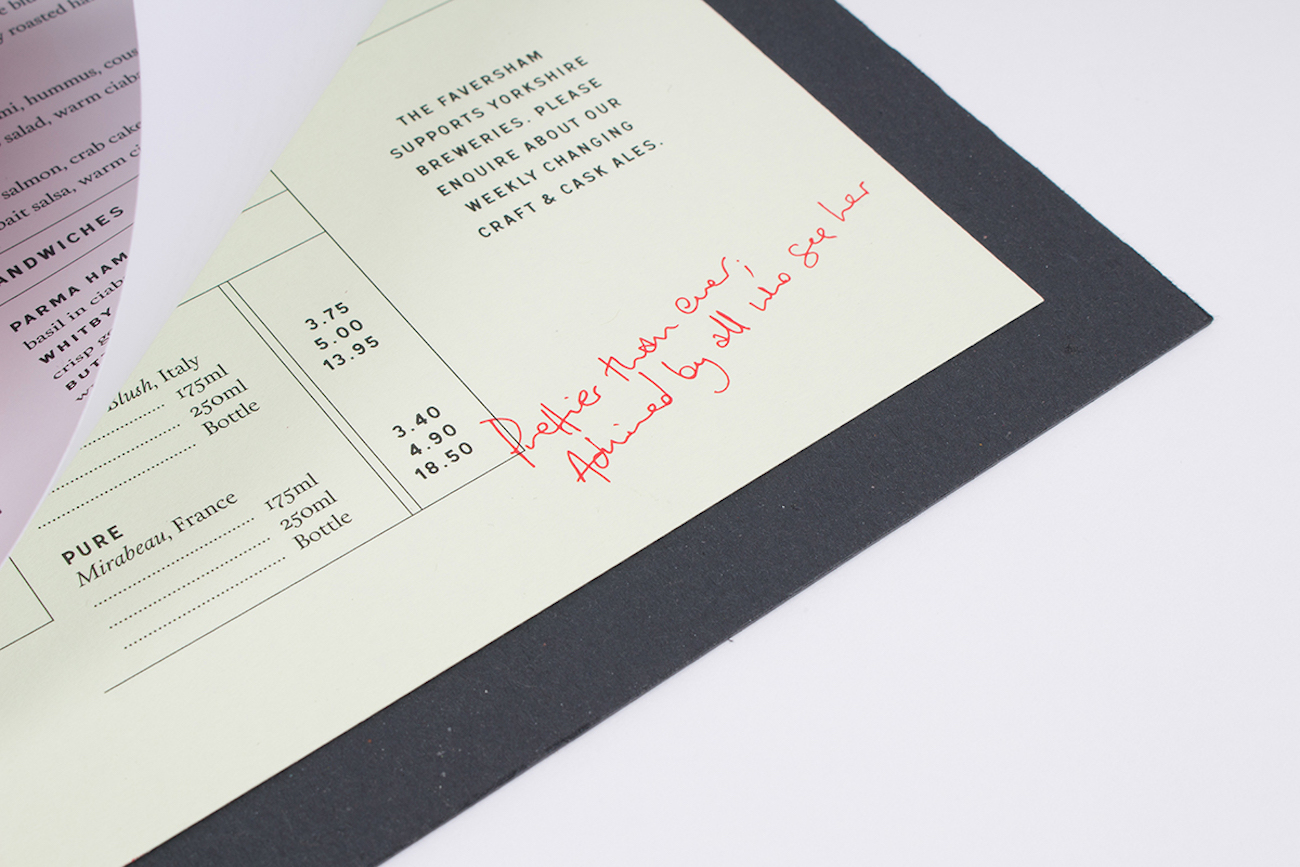 roasted ha
hummus, cous
salad, warm ciab
salmon, crab cake
bait salsa, warm ci
ANDWICHES
PARMA HAM
basil in ciab
WHITBY
crisp g
BUT
THE FAVERSHAM
SUPPORTS YORKSHIRE
BREWERIES. PLEASE
ENQUIRE ABOUT OUR
WEEKLY CHANGING
CRAFT & CASK ALES.
Blush, Italy
175ml 3.75
250ml 5.00
Bottle 13.95
PURE
Mirabeau, France
175ml 3.40
250ml 4.90
Bottle 18.50
Prettier than ever;
Admired by all who see her